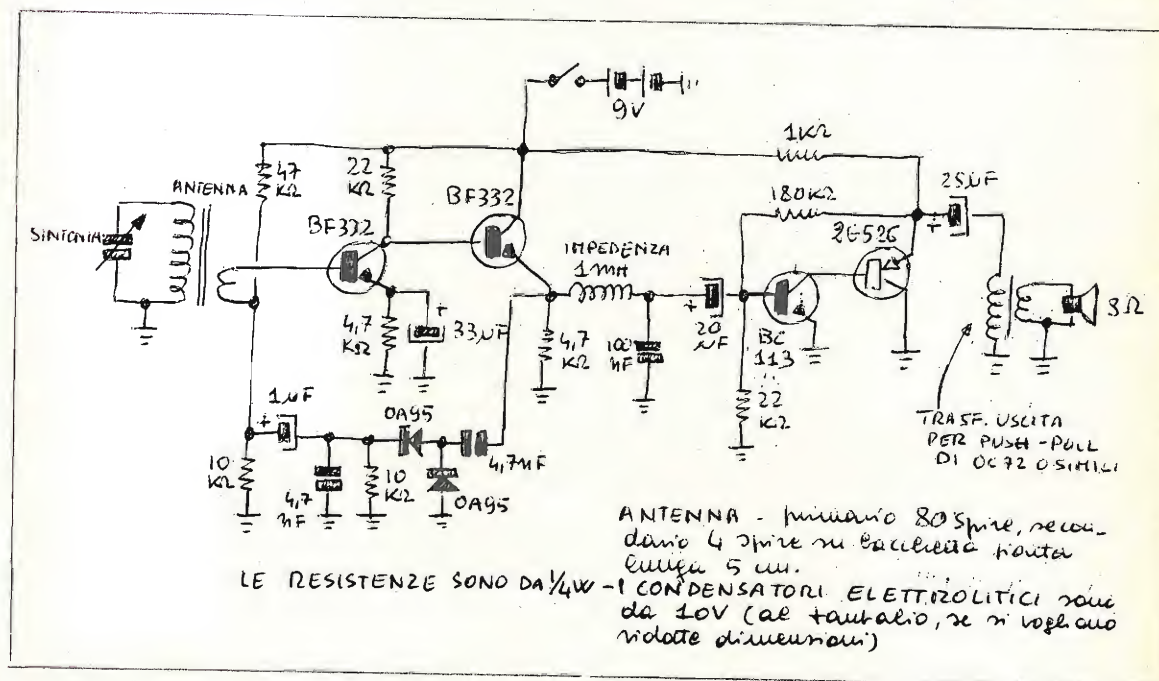 9V
1KΩ
47
KΩ
22
KΩ
25µF
ANTENNA
180KΩ
BF332
BF332
SINTONIA
2G526
IMPEDENZA
1mH
+
+
+
4,7
KΩ
33µF
4,7
KΩ
100
nF
20
µF
BC
113
8Ω
1µF
+
OA95
22
KΩ
TRASF. USCITA
PER PUSH-PULL
DI OC72 O SIMILI
10
KΩ
4,7
nF
10
KΩ
4,7nF
OA95
ANTENNA - primario 80 spire, secon-
dario 4 spire su bacchetta piatta
lunga 5 cm.
LE RESISTENZE SONO DA 1/4W - I CONDENSATORI ELETTROLITICI sono
da 10V (al tantalio, se si vogliono
ridotte dimensioni)